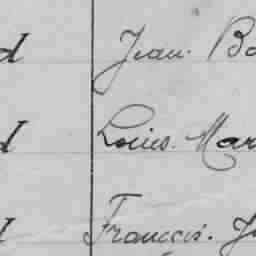 d Jean. Ba
d Louis. Mar
d François. J